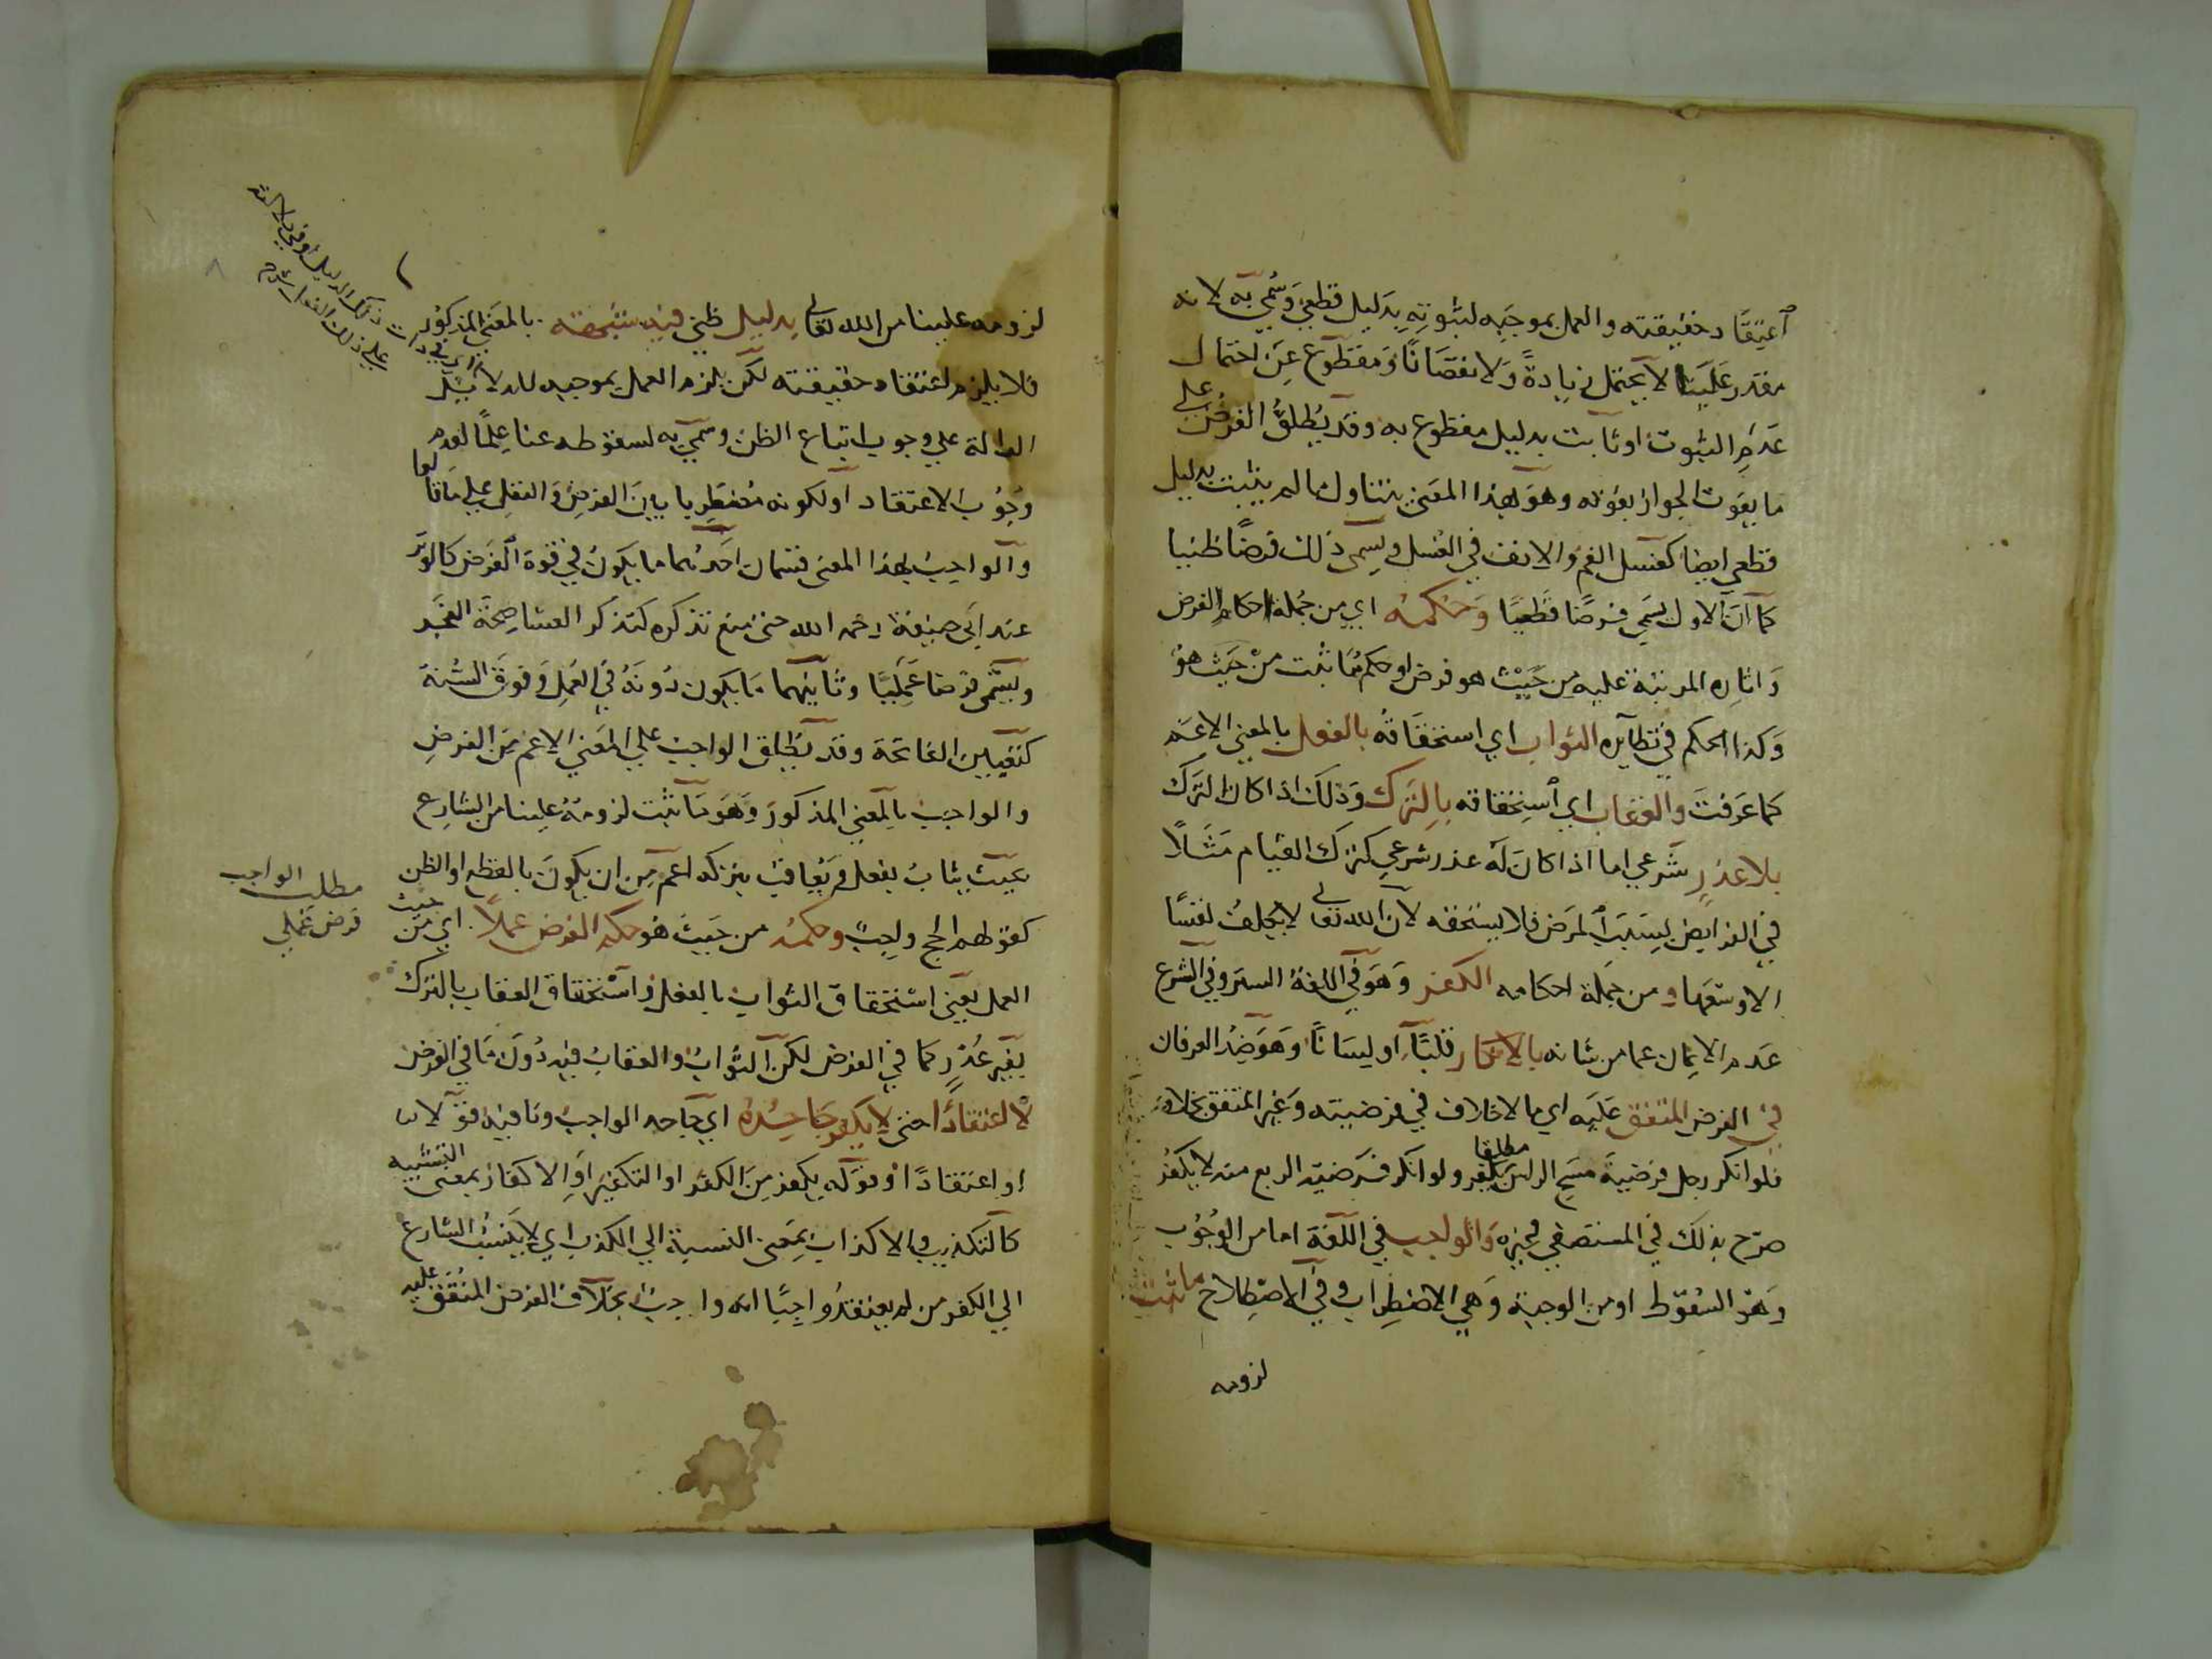 اعتقاد حقيقته والعمل بموجبه لثبوته بدليل قطعي وسمي به لانه
مقدر علينا لا يحتمل زيادة ولا نقصانا ومقطوع عن احتمال
عدم الثبوت او ثابت بدليل مقطوع به وقد يطلق الفرض على
ما يفوت الجواز بفوته وهو بهذا المعنى يتناول ما لم يثبت بدليل
قطعي ايضا كغسل الفم والانف في الغسل ويسمى ذلك فرضا ظنيا
كما ان الاول يسمى فرضا قطعيا وحكمه اي من جملة احكام الفرض
واثاره المرتبة عليه من حيث هو فرض او حكم ما ثبت من حيث هو
وكذا الحكم في نظايره الثواب اي استحقاقه بالفعل بالمعنى الاعم
كما عرفت والعقاب اي استحقاقه بالترك وذلك اذا كان الترك
بلا عذر شرعي اما اذا كان له عذر شرعي كترك القيام مثلا
في الفرايض بسبب المرض فلا يستحقه لان الله تعالى لا يكلف نفسا
الا وسعها ومن جملة احكامه الكفر وهو في اللغة الستر وفي الشرع
عدم الايمان عما من شانه بالانكار قلبا او لسانا وهو ضد العرفان
في الفرض المتفق عليه اي ما لا خلاف في فرضيته وغير المتفق بخلافه
فلو انكر رجل فرضية مسح الراس مطلقا يكفر ولو انكر فرضية الربع منه لا يكفر
صرح بذلك في المستصفى وغيره والواجب في اللغة اما من الوجوب
وهو السقوط او من الوجبة وهي الاضطراب وفي الاصطلاح ما ثبت
لزومه
لزومه علينا من الله تعالى بدليل ظني فيه شبهة بالمعنى المذكور
فلا يلزم اعتقاد حقيقته لكن يلزم العمل بموجبه للدلايل
الدالة على وجوب اتباع الظن وسمي به لسقوطه عنا علما لعدم
وجوب الاعتقاد او لكونه مضطربا بين الفرض والنفل على ما قالوا
والواجب بهذا المعنى قسمان احدهما ما يكون في قوة الفرض كالوتر
عند ابي حنيفة رحمه الله حتى منع تذكره كتذكر العشا صحة الفجر
ويسمى فرضا عمليا وثانيهما ما يكون دونه في العمل وفوق السنة
كتعيين الفاتحة وقد يطلق الواجب على المعنى الاعم من الفرض
والواجب بالمعنى المذكور وهو ما ثبت لزومه علينا من الشارع
بحيث يثاب بفعله ويعاقب بتركه اعم من ان يكون بالقطع او الظن
كقولهم الحج واجب وحكمه من حيث هو حكم الفرض عملا اي من حيث
العمل يعني استحقاق الثواب بالفعل واستحقاق العقاب بالترك
بغير عذر كما في الفرض لكن الثواب والعقاب فيه دون ما في الفرض
لا اعتقادا حتى لا يكفر جاحده اي جاحد الواجب ونافيه قولا
او اعتقادا وقوله يكفر من الكفر او التكفير او الاكفار بمعنى التشبيه
كالتكذيب والاكذاب بمعنى النسبة الى الكذب اي لا ينسب الشارع
الى الكفر من لم يعتقد واجبا انه واجب بخلاف الفرض المتفق عليه
مطلب الواجب
فرض عملي